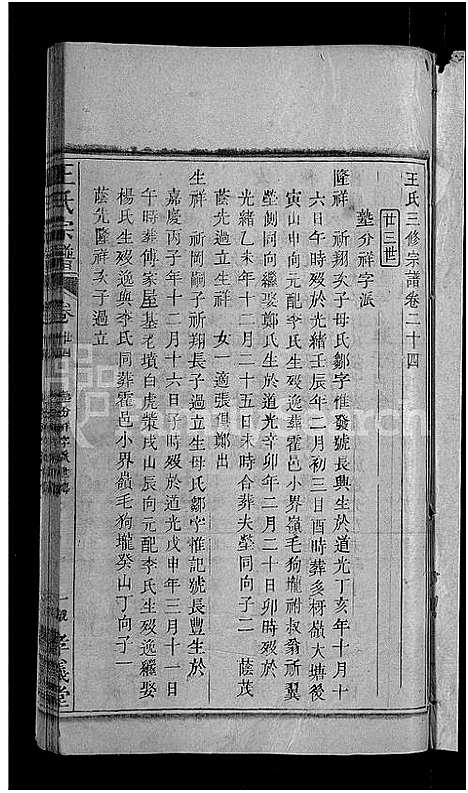 王氏三修宗譜卷二十四
廿三世
塾分祥字派
隆祥 祈翔次子母氏鄒字惟發號長興生於道光丁亥年十月十
六日午時歿於光緒壬辰年二月初三日酉時葬多枬嶺大塘後
寅山申向元配李氏生歿逸葬霍邑小界嶺毛狗壠祔叔翁祈翼
塋側同向繼娶鄭氏生於道光辛卯年二月二十日卯時歿於
光緒乙未年十二月二十五日未時合葬夫塋同向子二 蔭茂
蔭先過立生祥 女一適張俱鄭出
生祥 祈岡嗣子祈翔長子過立生母氏鄒字惟記號長豐生於
嘉慶丙子年十二月十六日子時歿於道光戊申年三月十一日
午時葬傅家屋基老墳白虎岸戌山辰向元配李氏生歿逸繼娶
楊氏生歿逸與李氏同葬霍邑小界嶺毛狗壠癸山丁向子一
蔭先隆祥次子過立
王氏宗譜 卷廿四
孝義堂